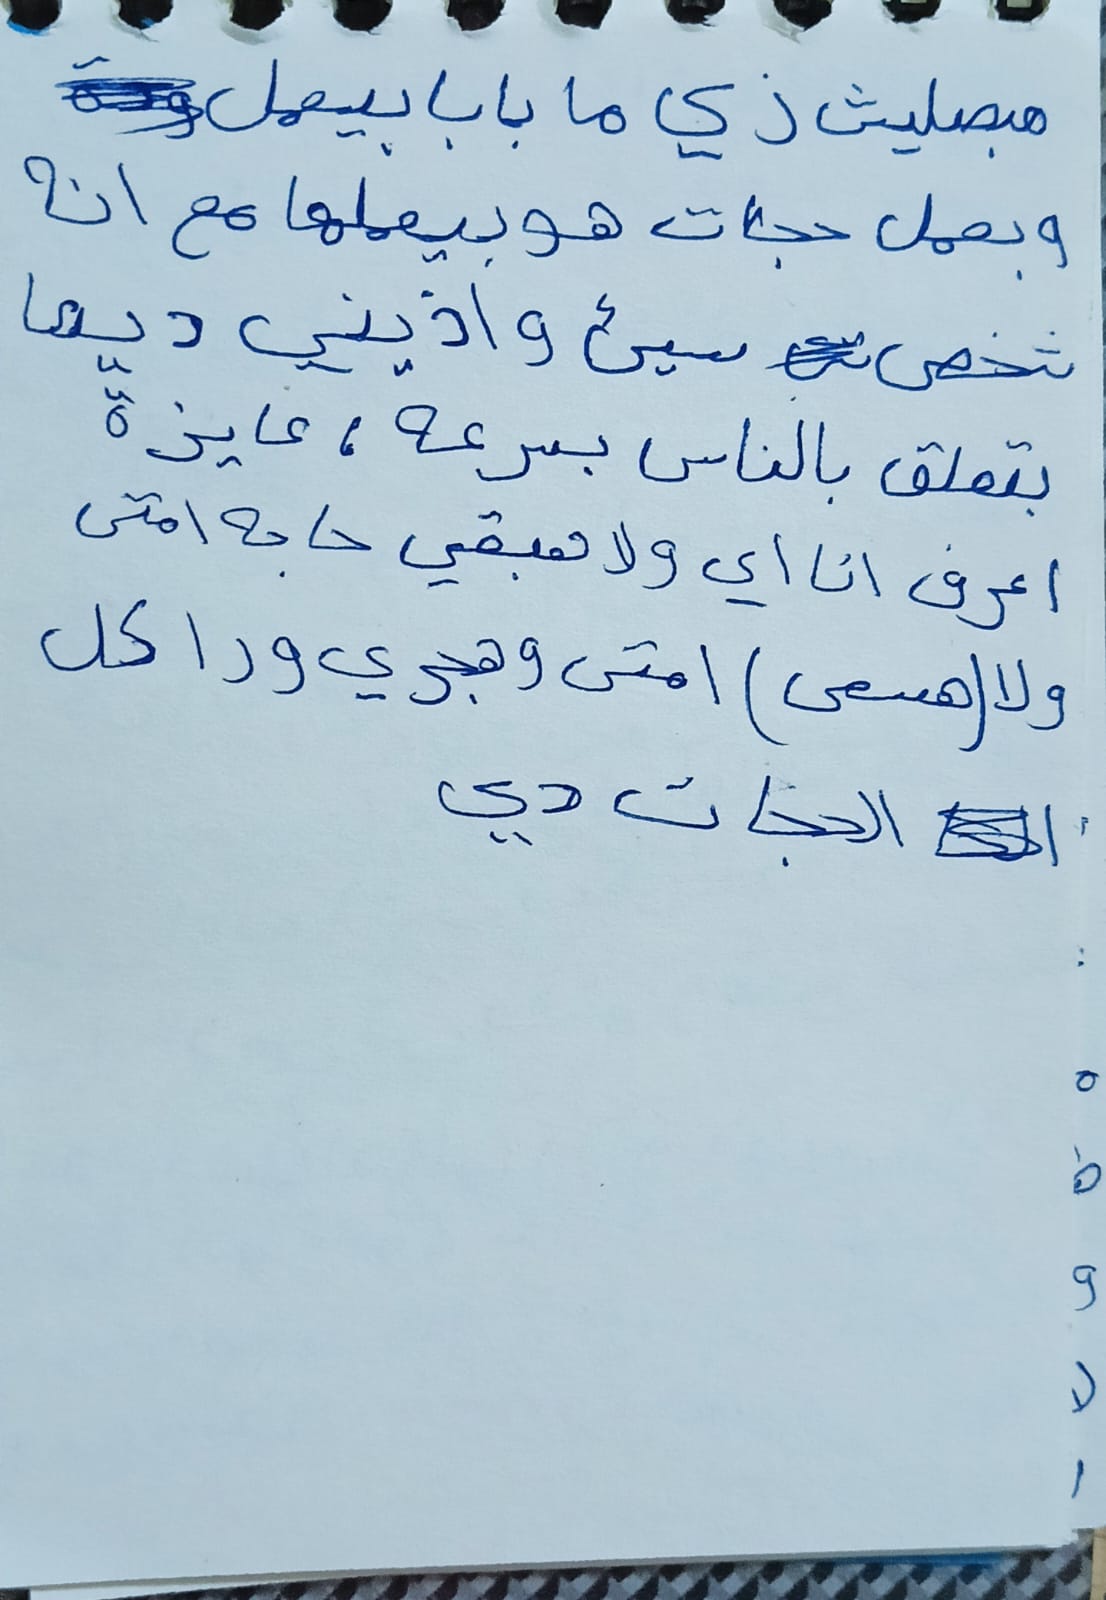 مبصليش زي ما بابا بيعمل
وبعمل حجات هو بيعملها مع انه
شخص سيئ واذيني ديما
بتعلق بالناس بسرعه ، عايزة
اعرف انا اي ولا هبقي حاجه امتى
ولا (هسعى) امتى وهجري ورا كل
الحجات دي